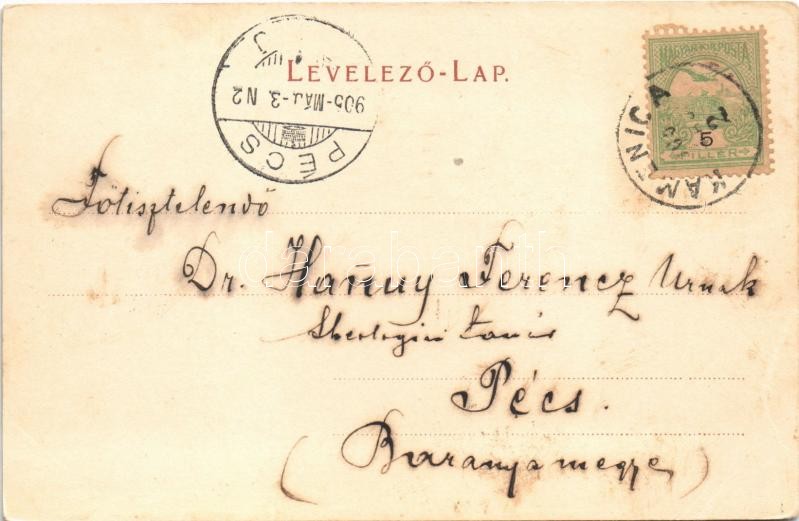 LEVELEZŐ-LAP.
PÉCS
905-MÁJ-3. N2
MAGYAR KIR. POSTA
5
FILLÉR
KAMENICA
Főtisztelendő
Dr. Hanuy Ferencz Urnak
theologiai tanár
Pécs.
(Baranya megye)
darabanth